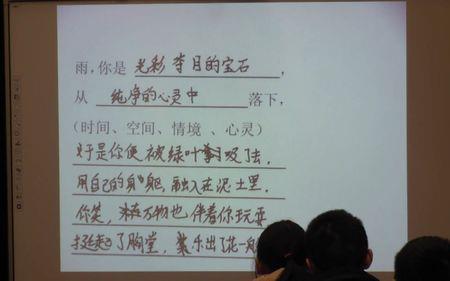 雨，你是 光彩夺目的宝石，
从 纯净的心灵中 落下，
（时间、空间、情境 、心灵）
于是你便被绿叶吸了去，
用自己的身躯，融入在泥土里，
你笑，万物也伴着你玩耍
挺起了胸堂，乐出了花一